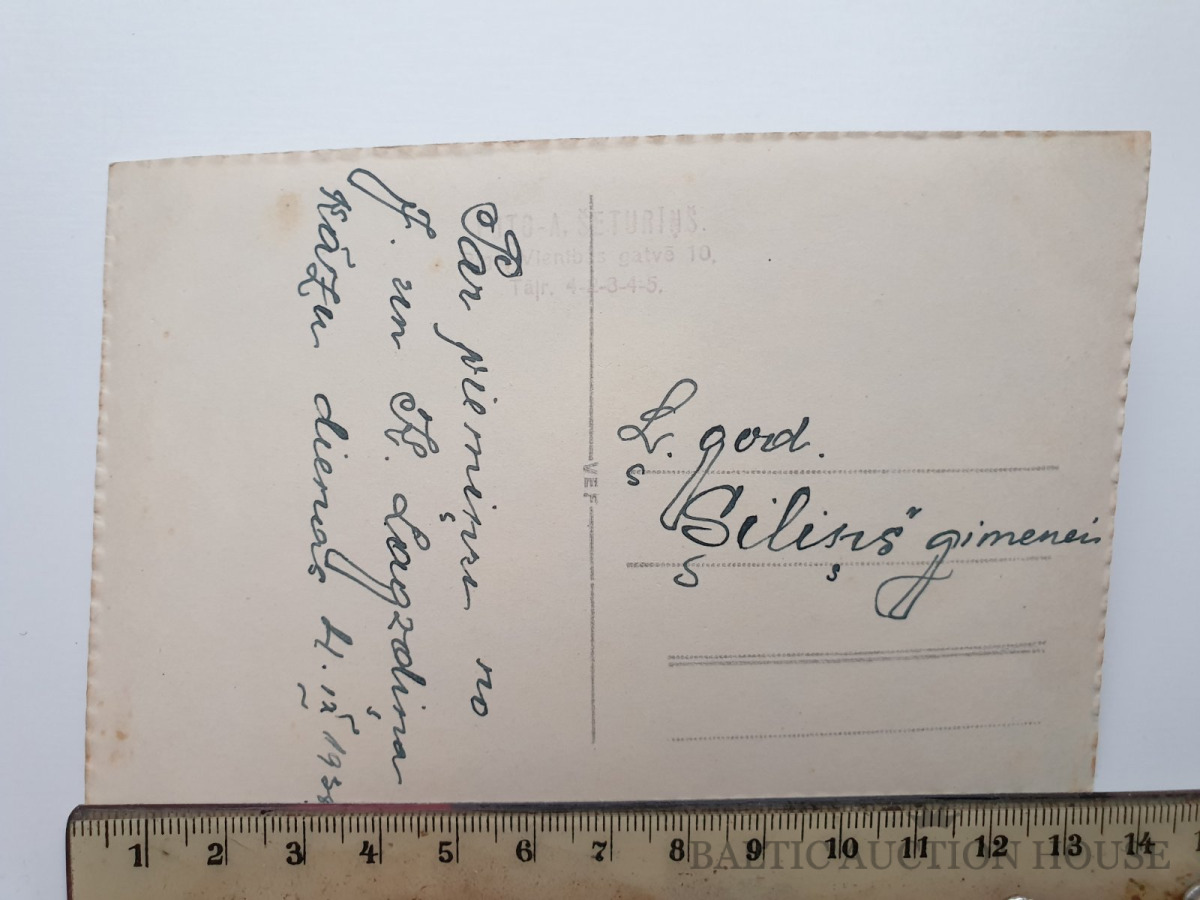 Par piemiņu no
J. un K. Lagzdiņa
kāzu dienas 4. IX 193
FOTO-A. ŠETURIŅŠ.
Vienības gatvē 10,
Tālr. 4-2-3-4-5.
VEF
L. god.
Siliņš gimenei
1 2 3 4 5 6 7 8 9 10 11 12 13 14
BALTIC AUCTION HOUSE